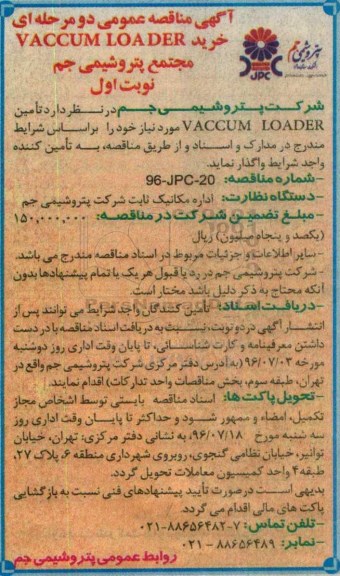 آگهی مناقصه عمومی دو مرحله ای
خرید VACCUM LOADER
مجتمع پتروشیمی جم
نوبت اول
JPC
شرکت پتروشیمی جم در نظر دارد تأمین
VACCUM LOADER مورد نیاز خود را براساس شرایط
مندرج در مدارک و اسناد و از طریق مناقصه، به تأمین کننده
واجد شرایط واگذار نماید.
-شماره مناقصه: 96-JPC-20
-دستگاه نظارت: اداره مکانیک ثابت شرکت پتروشیمی جم
- مبلغ تضمین شرکت در مناقصه: ۱۵۰,۰۰۰,۰۰۰
(یکصد و پنجاه میلیون) ریال
-سایر اطلاعات و جزئیات مربوط در اسناد مناقصه مندرج می باشد.
- شرکت پتروشیمی جم در رد یا قبول هر یک یا تمام پیشنهادها بدون
آنکه محتاج به ذکر دلیل باشد مختار است.
-دریافت اسناد: تأمین کنندگان واجد شرایط می توانند پس از
انتشار آگهی در دو نوبت، نسبت به دریافت اسناد مناقصه با در دست
داشتن معرفینامه و کارت شناسائی، تا پایان وقت اداری روز دوشنبه
مورخه ۹۶/۰۷/۰۳ (به آدرس دفتر مرکزی شرکت پتروشیمی جم واقع در
تهران، طبقه سوم، بخش مناقصات واحد تدارکات) اقدام نمایند.
-تحویل پاکت ها: اسناد مناقصه بایستی توسط اشخاص مجاز
تکمیل، امضاء و ممهور شود و حداکثر تا پایان وقت اداری روز
سه شنبه مورخ ۹۶/۰۷/۱۸، به نشانی دفتر مرکزی: تهران، خیابان
توانیر، خیابان نظامی گنجوی، روبروی شهرداری منطقه ۶، پلاک ۲۷،
طبقه ۴ واحد کمیسیون معاملات تحویل گردد.
بدیهی است در صورت تأیید پیشنهادهای فنی نسبت به بازگشایی
پاکت های مالی اقدام می گردد.
-تلفن تماس: ۷-۸۸۶۵۶۴۸۲-۰۲۱
-نمابر: ۸۸۶۵۶۴۸۹ - ۰۲۱
روابط عمومی پتروشیمی جم